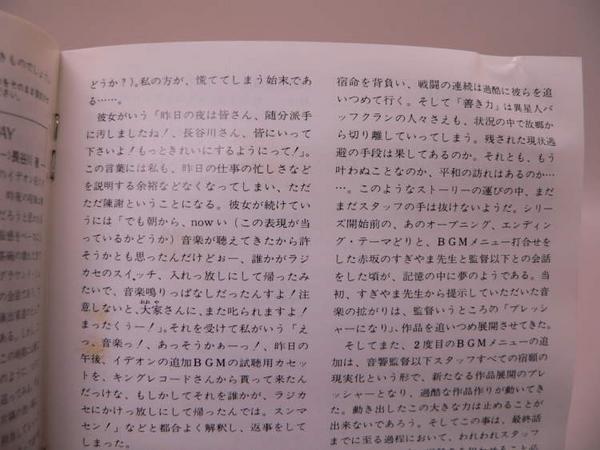 どうか?)。私の方が、慌ててしまう始末である……。
彼女がいう「昨日の夜は皆さん、随分派手
に汚しましたね!、長谷川さん、皆にいって
下さいよ!もっときれいにするようにって!」。
この言葉には私も、昨日の仕事の忙しさなど
を説明する余裕などなくなってしまい、ただ
ただ陳謝ということになる。彼女が続けてい
うには「でも朝から、nowい(この表現が当
っているかどうか)音楽が聴えてきたから許
そうかとも思ったんだけどぉー、誰かがラジ
カセのスイッチ、入れっ放しにして帰ったみ
たいで、音楽鳴りっぱなしだったんすよ!注
意しないと、大家さんに、また叱られますよ!
まったくうー!」。それを受けて私がいう「え
っ、音楽っ!、あっそうかぁーっ!、昨日の
午後、イデオンの追加BGMの試聴用カセッ
トを、キングレコードさんから貰って来たん
だっけな、もしかしてそれを誰かが、ラジカ
セにかけっ放しにして帰ったんでは。スンマ
セン!」などと都合よく解釈し、返事をして
しまった。
宿命を背負い、戦闘の連続は過酷に彼らを追
いつめて行く。そして「善き力」は異星人バ
ッフクランの人々さえも、状況の中で故郷か
ら切り離していってしまう。残された現状逃
避の手段は果してあるのか。それとも、もう
叶わぬことなのか、平和の訪れはあるのか…
…。このようなストーリーの運びの中、まだ
まだスタッフの手は抜けないようだ。シリー
ズ開始前の、あのオープニング、エンディン
グ・テーマどりと、BGMメニュー打合せを
した赤坂のすぎやま先生と監督以下との会話
をした頃が、記憶の中に夢のようである。当
初、すぎやま先生から提示していただいた音
楽の拡がりは、監督いうところの「プレッシ
ャーになり」、作品を追いつめ展開させてきた。
そしてまた、2度目のBGMメニューの追
加は、音響監督以下スタッフすべての宿願の
現実化という形で、新たなる作品展開のプレ
ッシャーとなり、過酷な作品作りが動いてき
た。動き出したこの大きな力は止めることが
出来ないであろう。そしてこの事は、最終話
までに至る過程において、われわれスタッフ